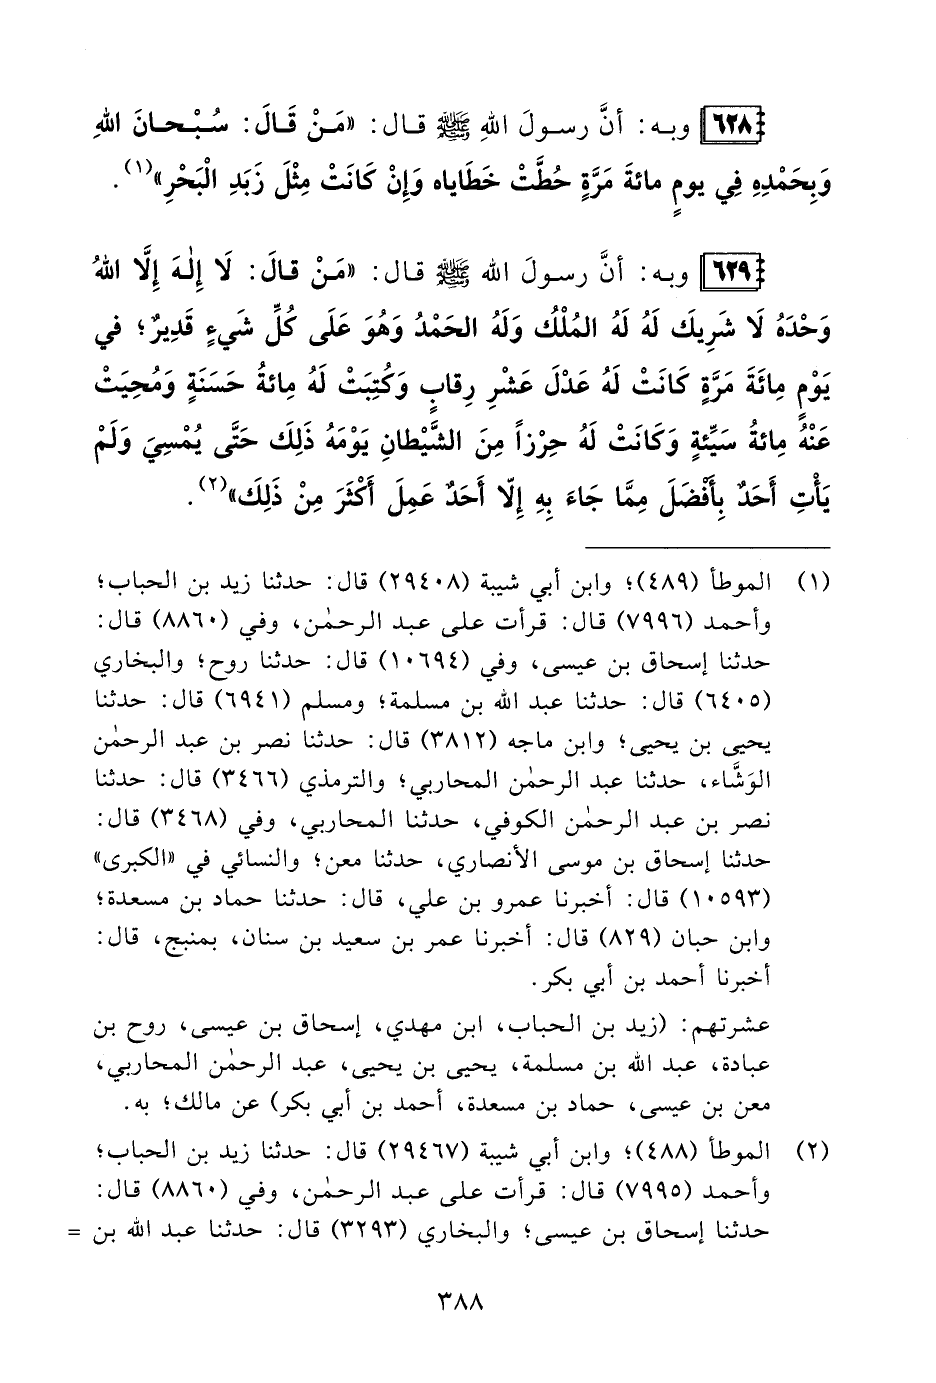 ٦٢٨ وبه: أنَّ رسولَ اللهِ ﷺ قال: «مَنْ قَالَ: سُبْحانَ اللهِ
وَبِحَمْدِهِ فِي يومٍ مائةَ مَرَّةٍ حُطَّتْ خَطَاياه وَإِنْ كَانَتْ مِثْلَ زَبَدِ الْبَحْرِ»(١).
٦٢٩ وبه: أنَّ رسولَ الله ﷺ قال: «مَنْ قالَ: لَا إِلٰهَ إِلَّا اللهُ
وَحْدَهُ لَا شَرِيكَ لَهُ لَهُ المُلْكُ وَلَهُ الحَمْدُ وَهُوَ عَلَى كُلِّ شَيءٍ قَدِيرٌ؛ في
يَوْمٍ مِائَةَ مَرَّةٍ كَانَتْ لَهُ عَدْلَ عَشْرِ رِقابٍ وَكُتِبَتْ لَهُ مِائةُ حَسَنَةٍ وَمُحِيَتْ
عَنْهُ مِائةُ سَيِّئةٍ وَكَانَتْ لَهُ حِرْزاً مِنَ الشَّيْطانِ يَوْمَهُ ذَلِكَ حَتَّى يُمْسِيَ وَلَمْ
يَأْتِ أَحَدٌ بِأَفْضَلَ مِمَّا جَاءَ بِهِ إِلّا أَحَدٌ عَمِلَ أَكْثَرَ مِنْ ذَلِكَ»(٢).
(١) الموطأ (٤٨٩)؛ وابن أبي شيبة (٢٩٤٠٨) قال: حدثنا زيد بن الحباب؛
وأحمد (٧٩٩٦) قال: قرأت على عبد الرحمٰن، وفي (٨٨٦٠) قال:
حدثنا إسحاق بن عيسى، وفي (١٠٦٩٤) قال: حدثنا روح؛ والبخاري
(٦٤٠٥) قال: حدثنا عبد الله بن مسلمة؛ ومسلم (٦٩٤١) قال: حدثنا
يحيى بن يحيى؛ وابن ماجه (٣٨١٢) قال: حدثنا نصر بن عبد الرحمٰن
الوَشَّاء، حدثنا عبد الرحمٰن المحاربي؛ والترمذي (٣٤٦٦) قال: حدثنا
نصر بن عبد الرحمٰن الكوفي، حدثنا المحاربي، وفي (٣٤٦٨) قال:
حدثنا إسحاق بن موسى الأنصاري، حدثنا معن؛ والنسائي في «الكبرى»
(١٠٥٩٣) قال: أخبرنا عمرو بن علي، قال: حدثنا حماد بن مسعدة؛
وابن حبان (٨٢٩) قال: أخبرنا عمر بن سعيد بن سنان، بمنبج، قال:
أخبرنا أحمد بن أبي بكر.
عشرتهم: (زيد بن الحباب، ابن مهدي، إسحاق بن عيسى، روح بن
عبادة، عبد الله بن مسلمة، يحيى بن يحيى، عبد الرحمٰن المحاربي،
معن بن عيسى، حماد بن مسعدة، أحمد بن أبي بكر) عن مالك؛ به.
(٢) الموطأ (٤٨٨)؛ وابن أبي شيبة (٢٩٤٦٧) قال: حدثنا زيد بن الحباب؛
وأحمد (٧٩٩٥) قال: قرأت على عبد الرحمٰن، وفي (٨٨٦٠) قال:
حدثنا إسحاق بن عيسى؛ والبخاري (٣٢٩٣) قال: حدثنا عبد الله بن =
٣٨٨